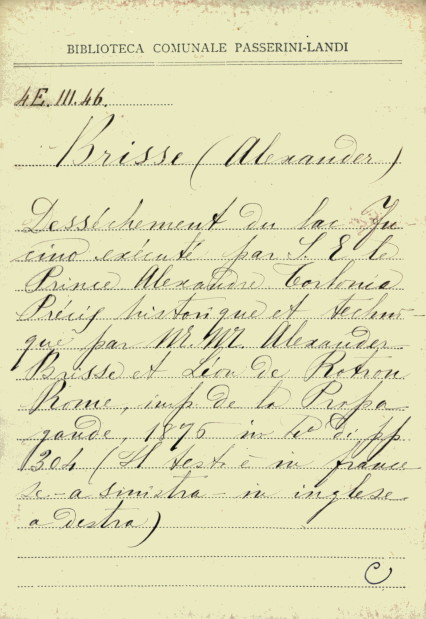 BIBLIOTECA COMUNALE PASSERINI-LANDI
4E.III.46.
Brisse (Alexander)
Desséchement du lac Fu-
cino exécuté par S. E. le
Prince Alexandre Torlonia
Précis historique et techni-
que par M.M. Alexander
Brisse et Léon de Rotrou
Rome, imp de la Propa
gande, 1876 in 4º di pp
304 (Il testo è in france
se - a sinistra - in inglese
a destra)
C